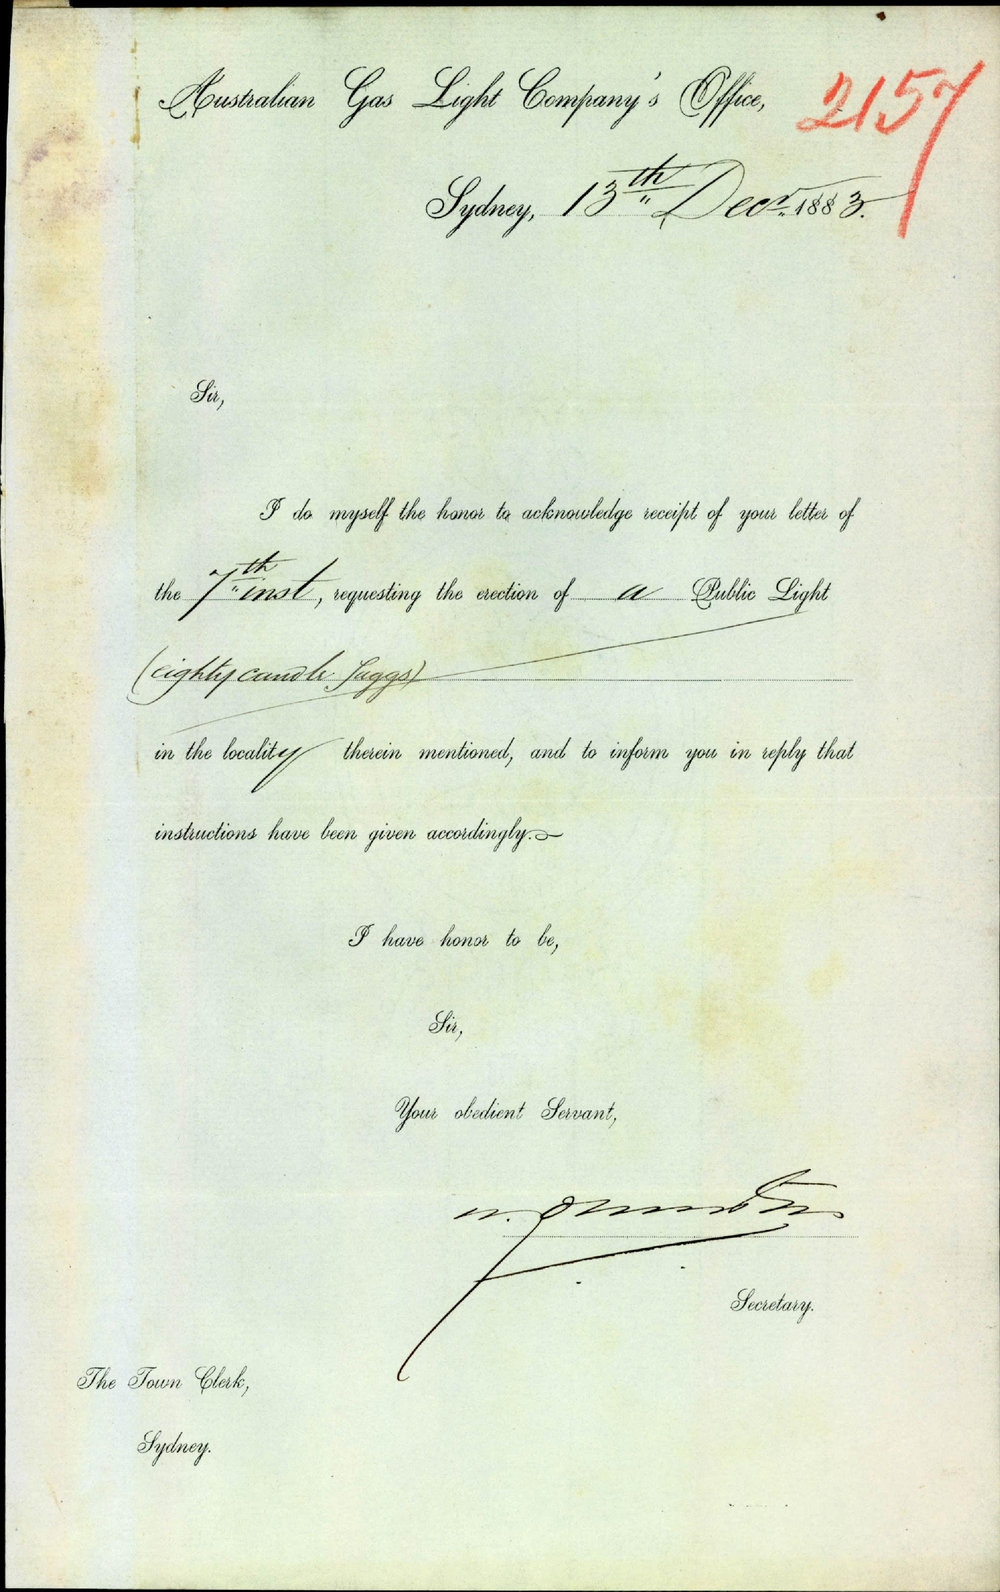 Australian Gas Light Company's Office,
2157
Sydney, 13th Decr. 1883.
Sir,
I do myself the honor to acknowledge receipt of your letter of
the 7th inst, requesting the erection of a Public Light
(eighty candle Suggs)
in the locality therein mentioned, and to inform you in reply that
instructions have been given accordingly.
I have honor to be,
Sir,
Your obedient Servant,
Secretary.
The Town Clerk,
Sydney.